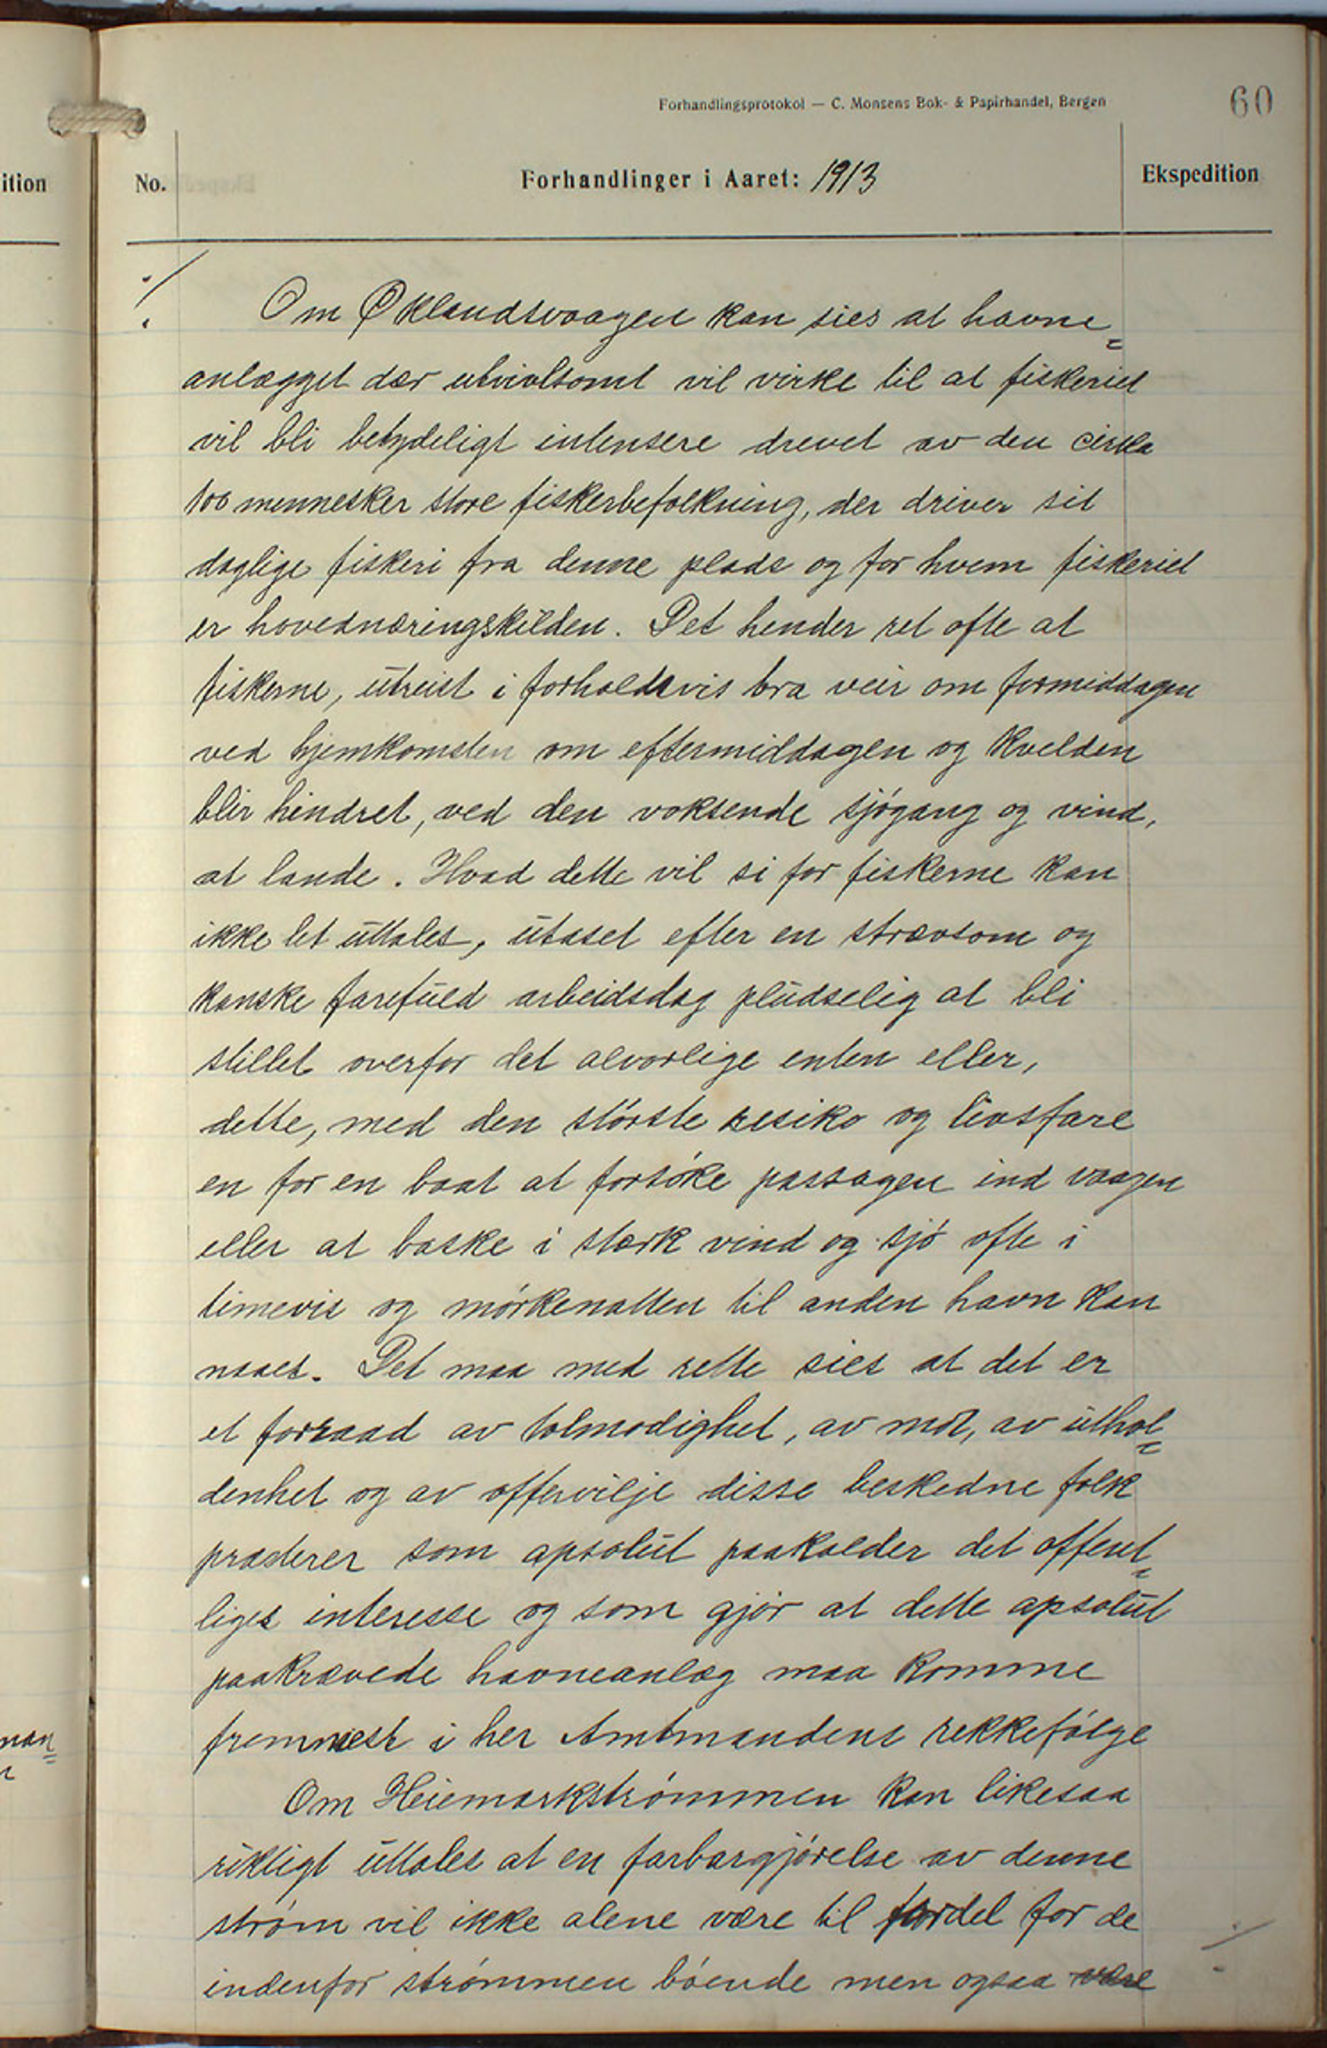 Forhandlingsprotokol — C. Monsens Bok- & Papirhandel, Bergen
60
ition
No.
Forhandlinger i Aaret: 1913
Ekspedition
Om Øklandsvaagen kan sies at havne=
anlægget dær utvivlsomt vil virke til at fiskeriet
vil bli betydeligt intensere drevet av den cirka
100 mennesker store fiskerbefolkning, der driver sit
daglige fiskeri fra denne plads og for hvem fiskeriet
er hovednæringskilden. Det hender ret ofte at
fiskerne, utreist i forholdsvis bra veir om formiddagen
ved hjemkomsten om eftermiddagen og kvelden
blir hindret, ved den voksende sjøgang og vind,
at lande. Hvad dette vil si for fiskerne kan
ikke let uttales, utaset efter en strævsom og
kanske farefuld arbeidsdag pludselig at bli
stillet overfor det alvorlige enten eller,
dette, med den største resiko og livsfare
en for en baat at forsøke passagen ind vaagen
eller at baske i stærk vind og sjø ofte i
timevis og mørkenatten til anden havn kan
naaes. Det maa med rette sies at det er
et forraad av tolmodighet, av mot, av uthol=
denhet og av offervilje disse beskedne folk
præsterer som apsolut paakalder det offent=
liges interesse og som gjør at dette apsolut
paakrævede havneanlæg maa komme
fremmest i her Amtmandens rekkefølge
man=
Om Heiemarkstrømmen kan likesaa
riktigt uttales at en farbargjørelse av denne
strøm vil ikke alene være til fordel for de
indenfor strømmen boende men ogsaa være